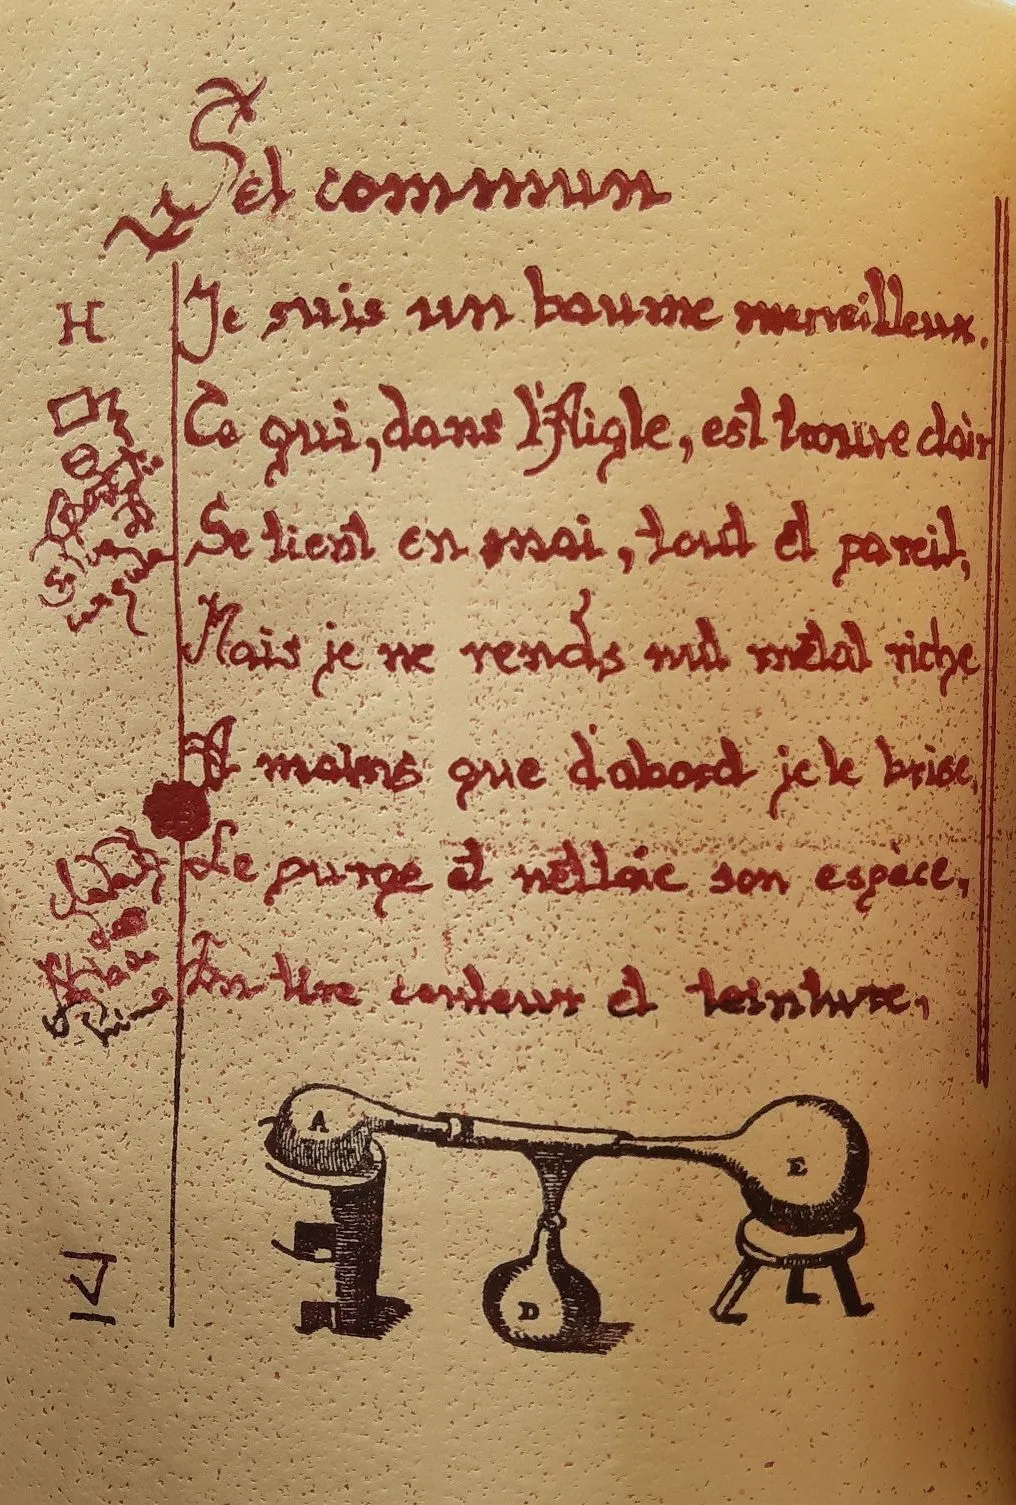 Sel commun
H
Je suis un baume merveilleux.
Ce qui, dans l'Aigle, est trouvé clair
Se tient en moi, tout et pareil,
Mais je ne rends nul métal riche
A moins que d'abord je le brise,
Le purge et nettoie son espèce,
En tire couleur et teinture,
A
E
D